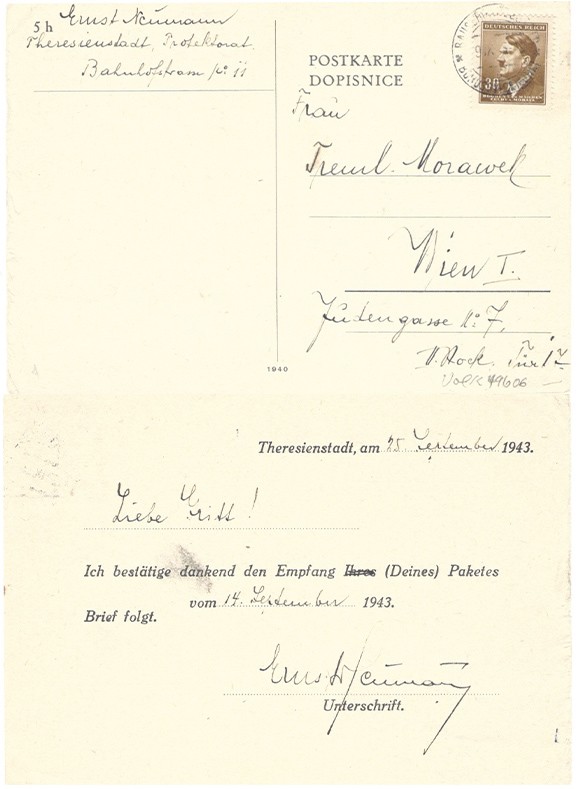 5 h
Ernst Neumann
Theresienstadt, Protektorat
Bahnhofstrasse No 11
POSTKARTE
DOPISNICE
DEUTSCHES REICH
30
Frau
Treml. Morawek
Wien I.
Judengasse No 7,
II. Stock. Tür 12
1940
Theresienstadt, am 25. September 1943.
Liebe Gritt!
Ich bestätige dankend den Empfang Ihres (Deines) Paketes
vom 14. September 1943.
Brief folgt.
Ernst Neumann
Unterschrift.